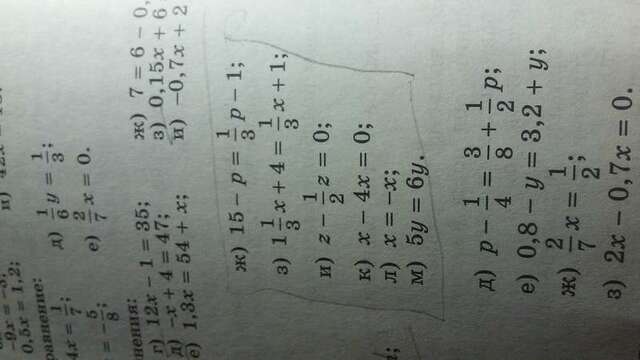 -9x = -3;
0,5x = 1,2;
и) 42x = 13.
равнение:
4x = 1/7;
д) 1/6 y = 1/3;
= -5/8;
е) 2/7 x = 0.
нения:
г) 12x - 1 = 35;
ж) 7 = 6 - 0,
д) -x + 4 = 47;
з) 0,15x + 6
е) 1,3x = 54 + x;
и) -0,7x + 2
ж) 15 - p = 1/3 p - 1;
з) 1 1/3 x + 4 = 1/3 x + 1;
и) z - 1/2 z = 0;
к) x - 4x = 0;
л) x = -x;
м) 5y = 6y.
д) p - 1/4 = 3/8 + 1/2 p;
е) 0,8 - y = 3,2 + y;
ж) 2/7 x = 1/2;
з) 2x - 0,7x = 0.